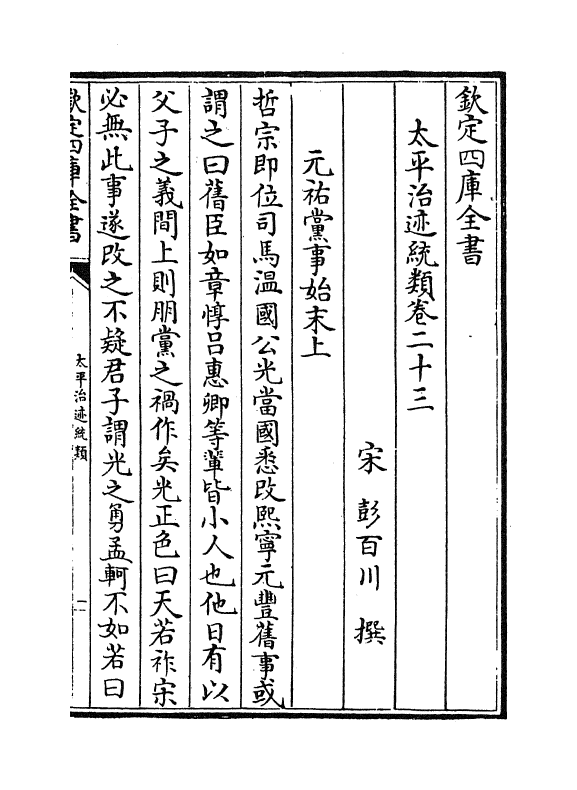 欽定四庫全書
太平治迹統類卷二十三
宋 彭百川 撰
元祐黨事始末上
哲宗即位司馬温國公光當國悉改熙寧元豐舊事或
謂之曰舊臣如章惇吕惠卿等輩皆小人也他日有以
父子之義間上則朋黨之禍作矣光正色曰天若祚宋
必無此事遂改之不疑君子謂光之勇孟軻不如若曰
欽定四庫全書
太平治迹統類
一